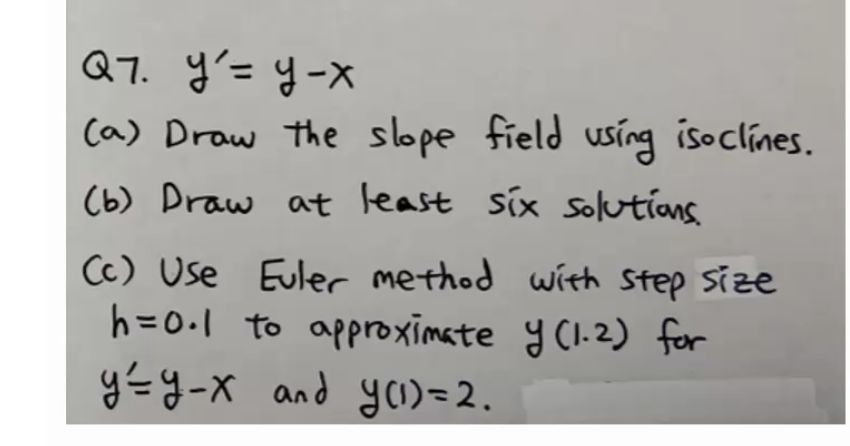 Q7. y′= y-x
(a) Draw the slope field using isoclines.
(b) Draw at least six solutions.
(c) Use Euler method with step size
h=0.1 to approximate y(1.2) for
y′=y-x and y(1)=2.